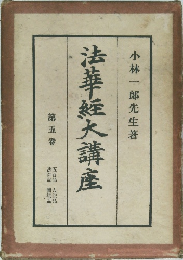 小林一郎先生著
法華經大講座
第五卷